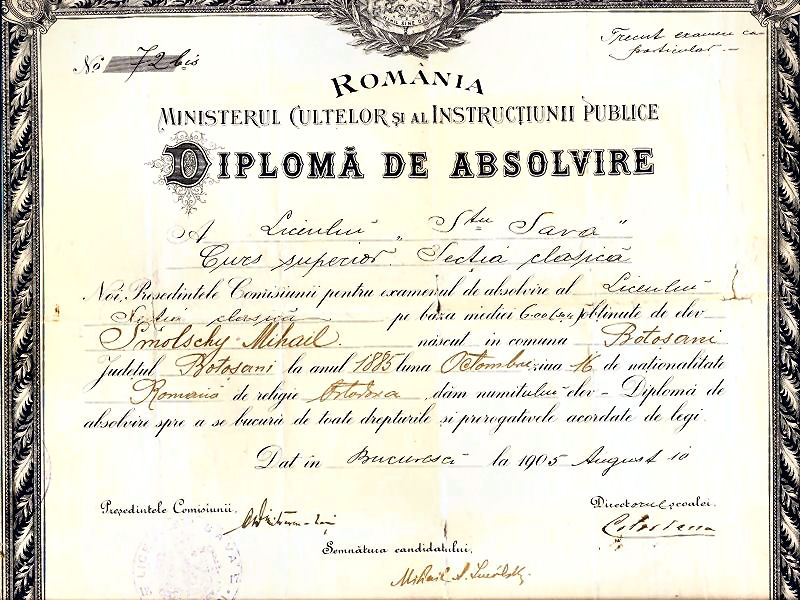 NIHIL SINE DEO
No 72 bis
Trecut examen ca
particular. —
ROMÂNIA
MINISTERUL CULTELOR ŞI AL INSTRUCŢIUNII PUBLICE
DIPLOMĂ DE ABSOLVIRE
A Liceului „Stu Sava"
Curs superior. Secția clasică
Noi, Președintele Comisiunii pentru examenul de absolvire al Liceului
Secția clasică pe baza mediei obținute de elev
Smolschy Mihail. născut in comuna Botosani
Judetul Botosani la anul 1885 luna Octombrie ziua 16 de nationalitate
Romană de religie Ortodoxa dăm numitului elev – Diplomă de
absolvire spre a se bucura de toate drepturile si prerogativele acordate de legi.
Dat in Bucuresci la 1905 August 10
Președintele Comisiunii,
Directorul școalei,
Semnătura candidatului,
Mihail A. Smolsky.